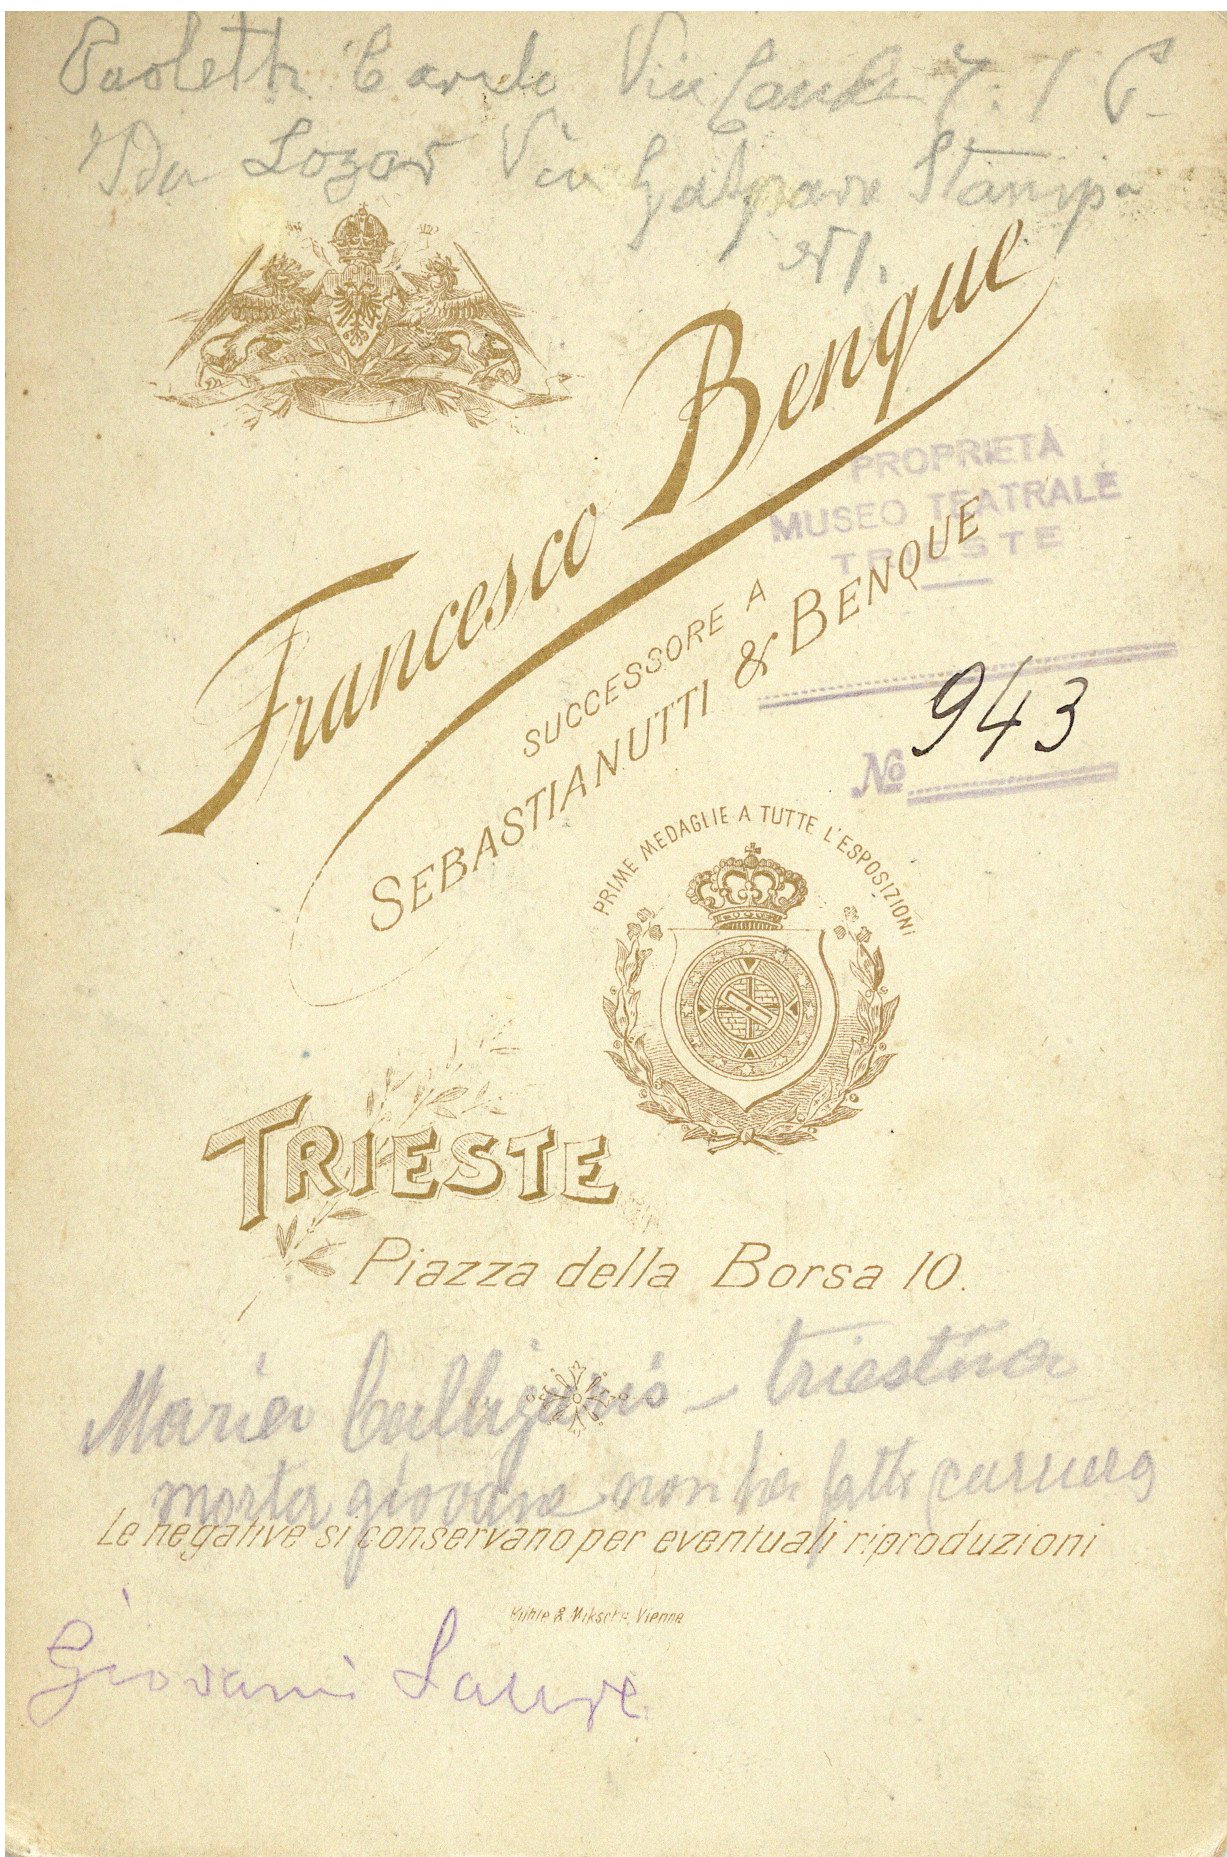 Paoletti Carlo Via 7. I
Ida Lozar Via Gaspare Stampa
N 1.
Francesco Benque
PROPRIETÀ
MUSEO TEATRALE
TRIESTE
SUCCESSORE A
SEBASTIANUTTI & BENQUE
No 943
PRIME MEDAGLIE A TUTTE L'ESPOSIZIONI
TRIESTE
Piazza della Borsa 10.
Maria Calligaris - triestina
morta giovane non ha fatto carriera
Le negative si conservano per eventuali riproduzioni
Kühle & Miksche, Vienne
Giovanni